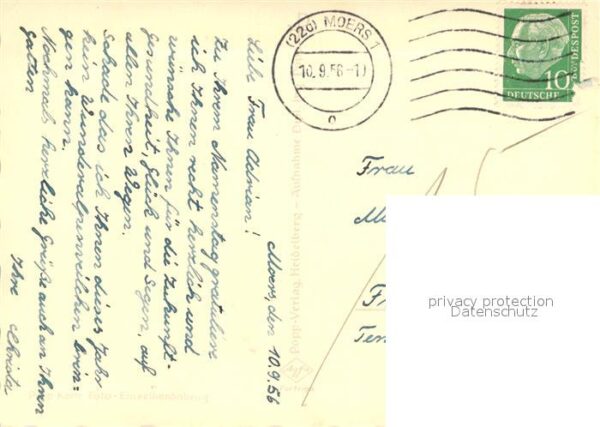 Moers, den 10.9.56
Liebe Frau Adrian!
Zu Ihrem Namenstag gratuliere
ich Ihnen recht herzlich und
wünsche Ihnen für die Zukunft
Gesundheit, Glück und Segen, auf
allen Ihren Wegen.
Schade das ich Ihnen dieses Jahr
kein Wunderalpenveilchen brin-
gen kann.
Nochmals herzliche Grüße auch an Ihren
Gatten
Ihre Christa
(22a) MOERS 1
10.9.56-1
c
DEUTSCHE BUNDESPOST
10
Popp-Verlag, Heidelberg - Aufnahme
Agfa
Popp Karte
Frau
privacy protection
Datenschutz